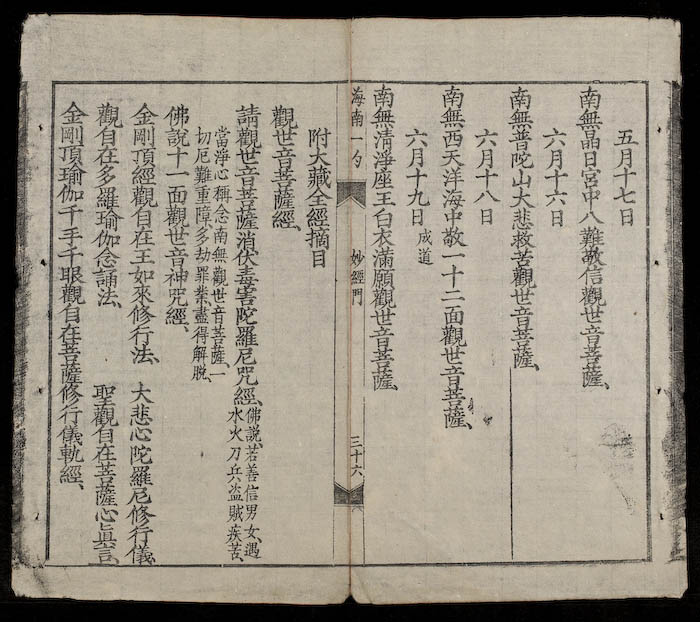 五月十七日
南無晶日宮中八難敬信觀世音菩薩、
六月十六日
南無普陀山大悲救苦觀世音菩薩、
六月十八日
南無西天洋海中敬一十二面觀世音菩薩、
六月十九日 成道
南無清淨座王白衣滿願觀世音菩薩、
海南一勺 妙經門 三十六
附大藏全經摘目
觀世音菩薩經、
請觀世音菩薩消伏毒害陀羅尼咒經、佛說、若善信男女、遇
水火刀兵盜賊疾苦、
當淨心稱念南無觀世音菩薩、一
切厄難重障多劫罪業盡得解脫、
佛說十一面觀世音神咒經、
金剛頂經觀自在王如來修行法、 大悲心陀羅尼修行儀、
觀自在多羅瑜伽念誦法、 聖觀自在菩薩心眞言、
金剛頂瑜伽千手千眼觀自在菩薩修行儀軌經、